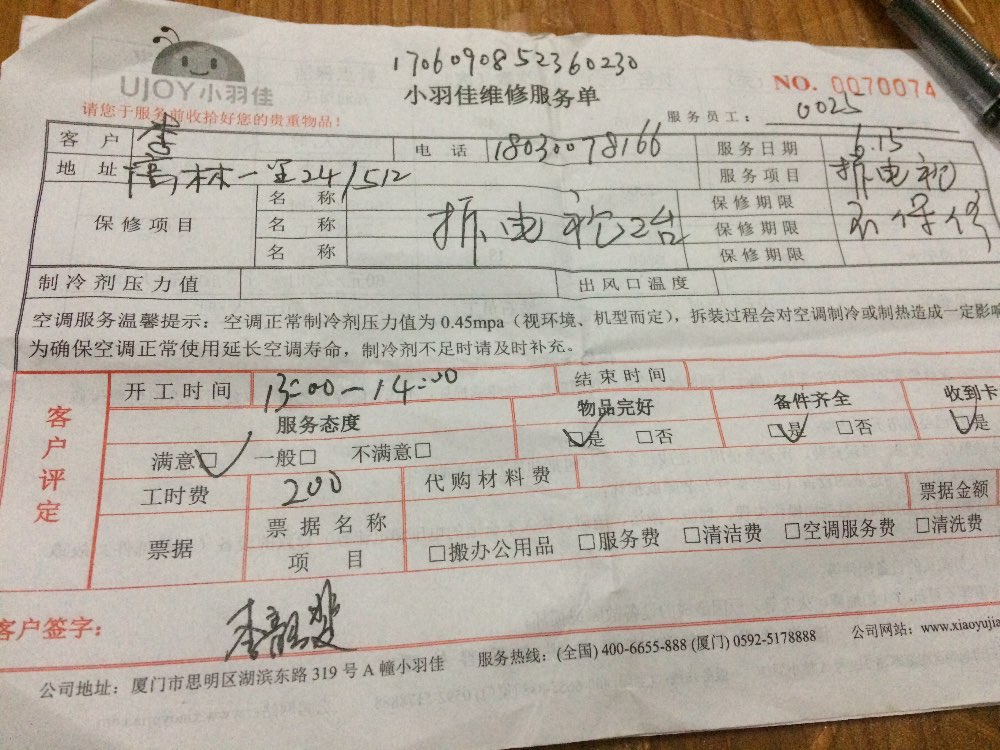 1706090852360230
UJOY小羽佳
小羽佳维修服务单
NO. 0070074
请您于服务前收拾好您的贵重物品！
服务员工： 0025
客户 李 电话 18030078166 服务日期 6.15
地址 高林一里24/512 服务项目 拆电视
保修项目 名称 保修期限
名称 拆电视2台 保修期限 不保修
名称 保修期限
制冷剂压力值 出风口温度
空调服务温馨提示：空调正常制冷剂压力值为 0.45mpa（视环境、机型而定），拆装过程会对空调制冷或制热造成一定影
为确保空调正常使用延长空调寿命，制冷剂不足时请及时补充。
客户评定
开工时间 13:00—14:00 结束时间
服务态度 物品完好 备件齐全 收到卡
满意□ 一般□ 不满意□ □是 □否 □是 □否 □是
工时费 200 代购材料费
票据 票据名称 票据金额
项目 □搬办公用品 □服务费 □清洁费 □空调服务费 □清洗费
客户签字：
公司地址：厦门市思明区湖滨东路 319 号 A 幢小羽佳 服务热线：(全国) 400-6655-888 (厦门) 0592-5178888 公司网站：www.xiaoyujia